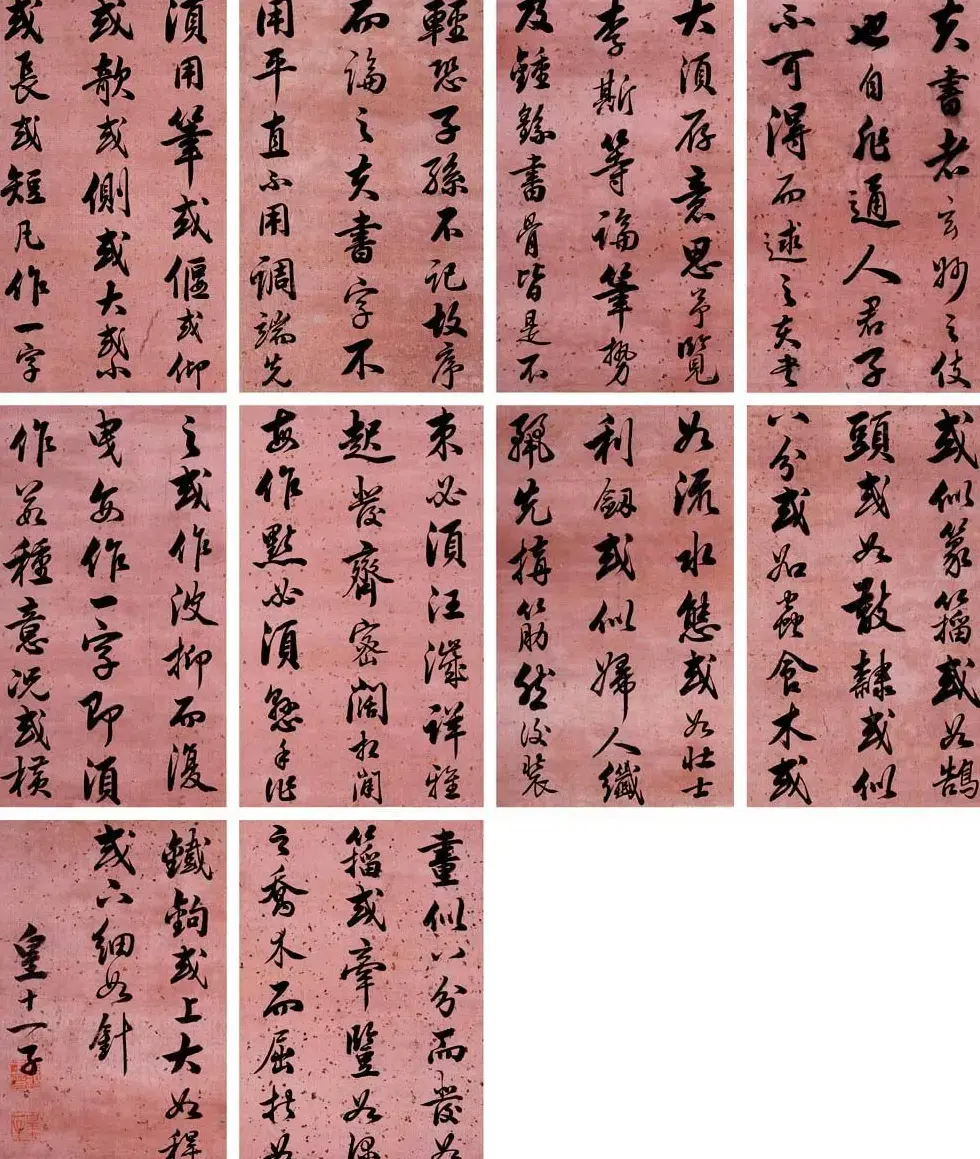 夫書者玄妙之伎
也自非通人君子
不可得而述之夫書
大須存意思予覽
李斯等論筆勢
及鍾繇書骨皆是不
輕恐子孫不記故序
而論之夫書字不
用平直不用調端先
須用筆或偃或仰
或欹或側或大或小
或長或短凡作一字
或似篆籀或如鵠
頭或如散隸或似
八分或如蟲食木或
如流水態或如壯士
利劔或似婦人纖
麗先搆筋然後裝
束必須汪濊詳雅
起發齊密闊相間
每作點必須懸手作
之或作波抑而復
曳每作一字即須
作若種意況或橫
畫似八分而發如
籀或牽豎如深
之喬木而屈折如
鐵鉤或上大如稈
或下細如針
皇十一子